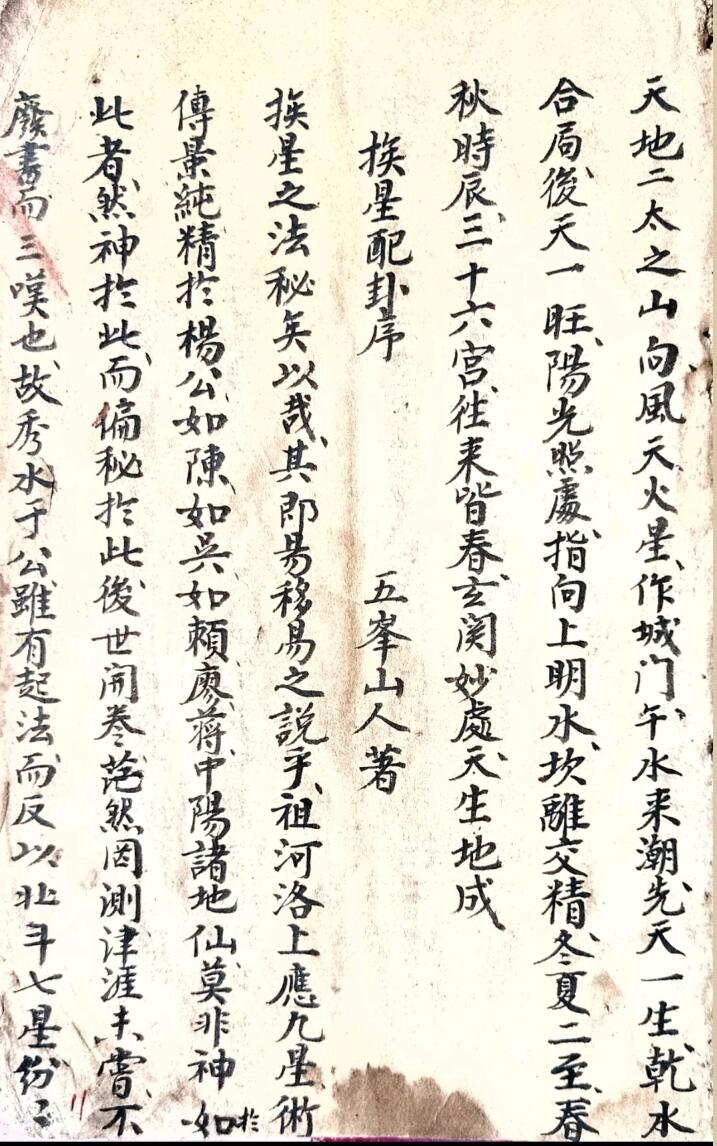 天地二太之山向風天火星、作城门午水来潮、先天一生乾水
合局、後天一旺、陽光照處、指向上明水、坎離交精、冬夏二至、春
秋時辰、三十六宮、往来皆春、玄関妙處、天生地成
挨星配卦序　五峯山人著
挨星之法秘矣以哉、其即易移易之說乎、祖河洛上應九星、術
傳景純、精扵楊公、如陳、如吳、如賴、廖、蔣、中陽諸地仙、莫非神如扵
此者、然神扵此、而偏秘扵此、後世開卷茫然、罔測津涯、未嘗不
廢書而三嘆也、故秀水于公雖有起法、而反以北斗七星份〻